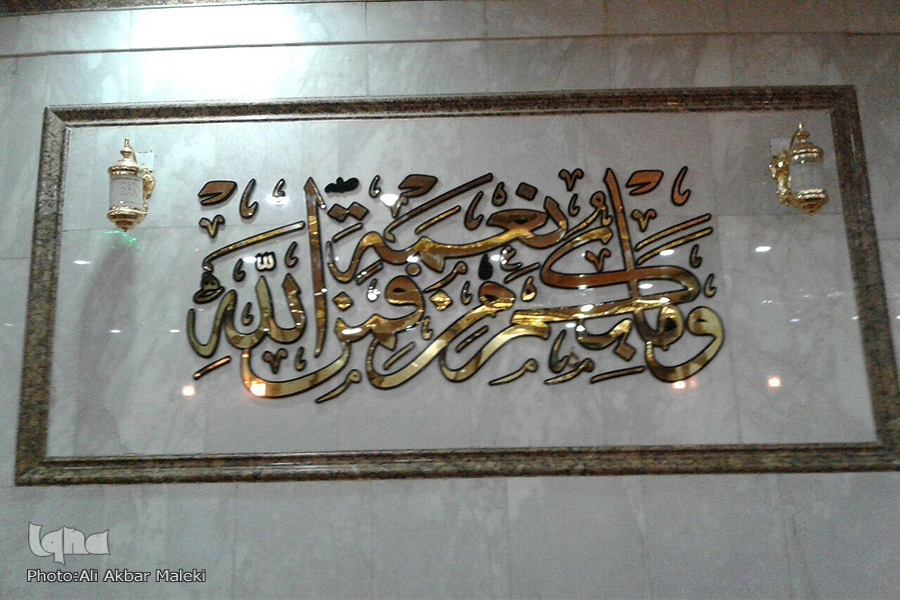 وَمَا بِكُمْ مِنْ نِعْمَةٍ فَمِنَ اللَّهِ
Iqna
Photo:Ali Akbar Maleki